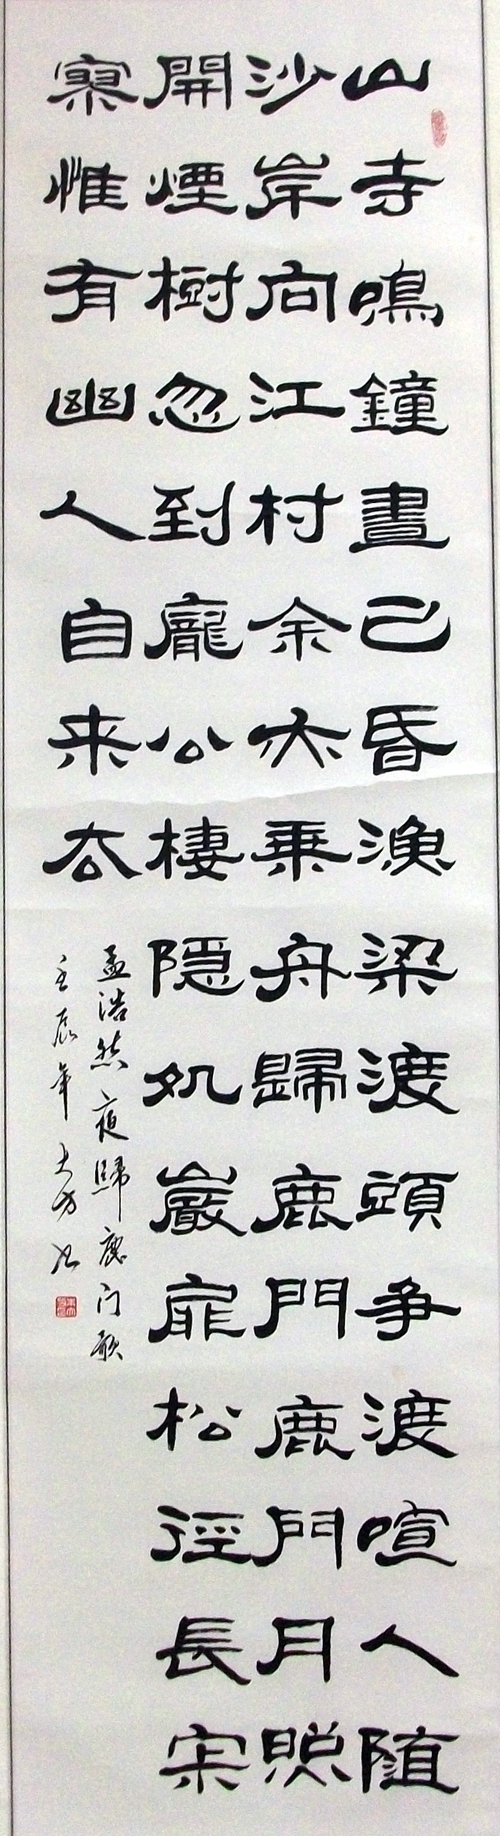 山寺鳴鐘晝已昏漁梁渡頭争渡喧人随
沙岸向江村余亦乗舟歸鹿門鹿門月照
開煙樹忽到龐公棲隠処巖扉松徑長宋
寞惟有幽人自来去
孟浩然夜歸鹿门歌
壬辰年大方书